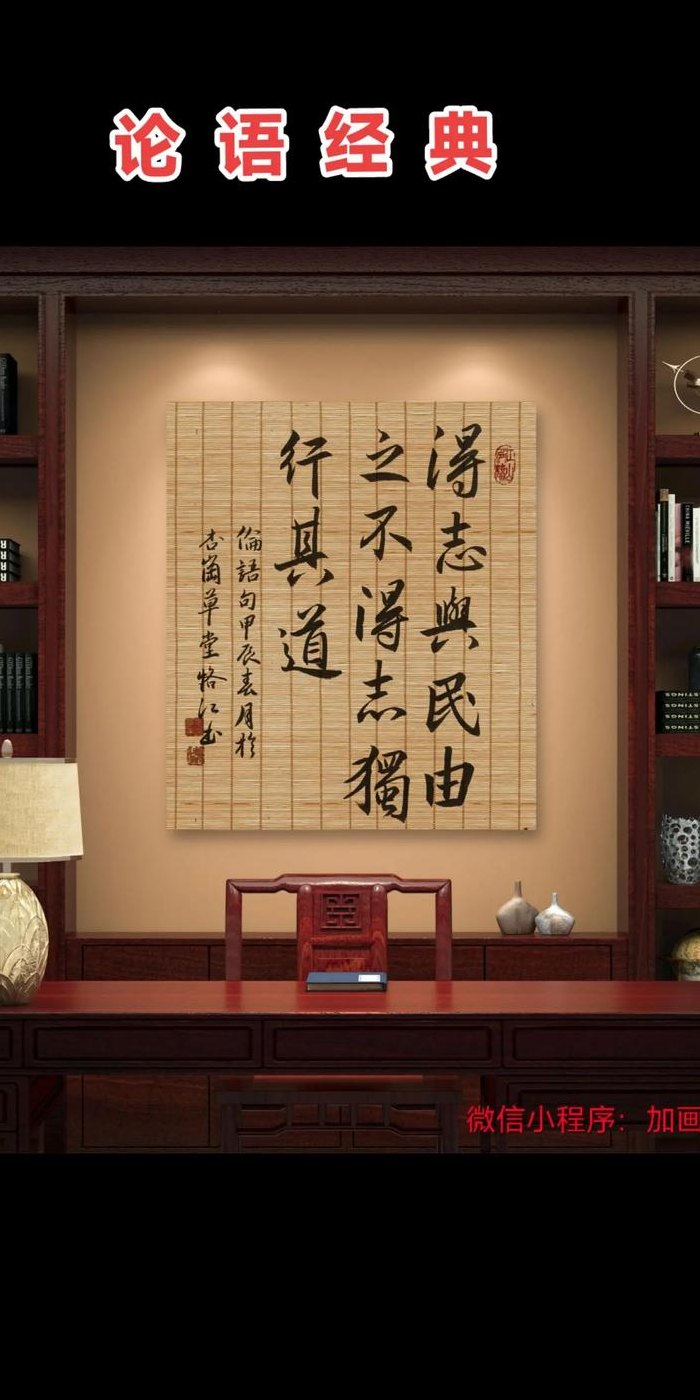 论语经典
得志與民由
之不得志獨
行其道
倫語句甲辰春月於
杏崗草堂
微信小程序：加画